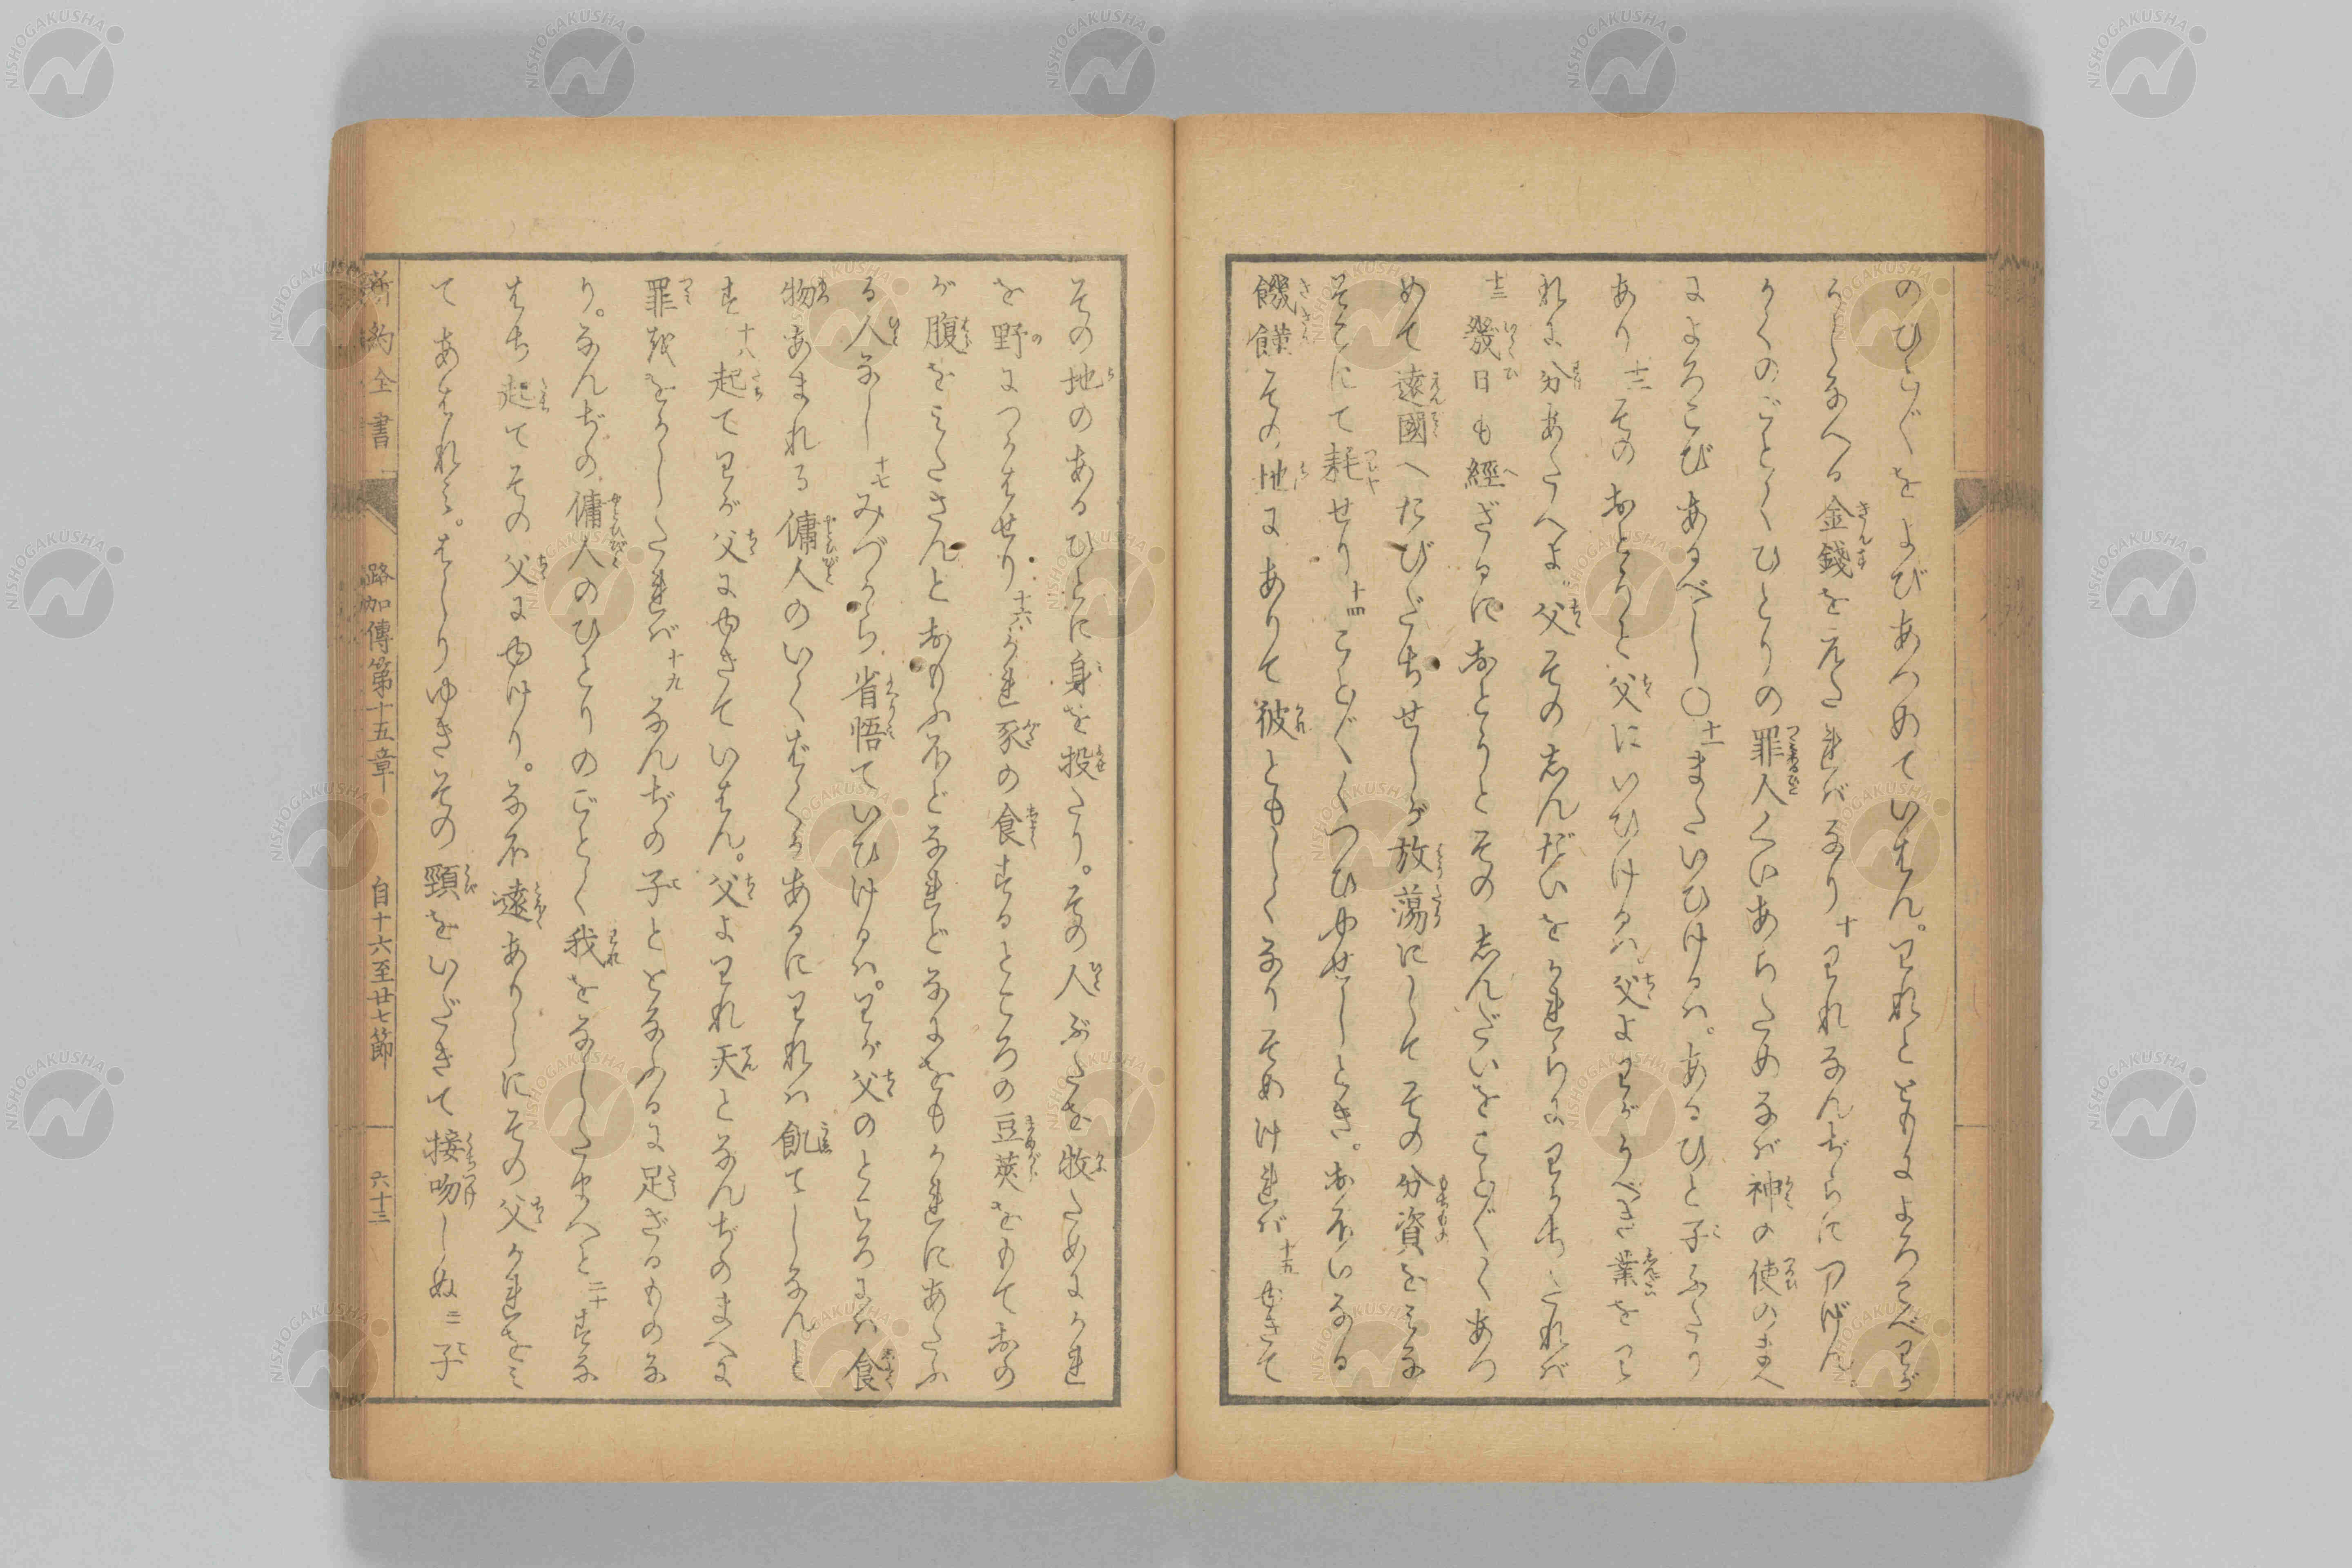 のひとびとをよびあつめていはん。われとともによろこべわが
うしなへる金錢をえたればなり十われなんぢらにつげん。
かくのごとくひとりの罪人くいあらためなば神の使のまへ
によろこびあるべし〇十一またいひけるは。あるひと子ふたり
あり十二そのおとうと父にいひけるは父よわがうべき業をわ
れに分あたへよ父そのしんだいをかれらにわかちたれば
十三幾日も經ざるにおとうとそのしんだいをことごとくあつ
めて遠國へたびだちせしが放蕩にしてその分資をみな
そこにて耗せり十四ことごとくつひやせしとき。おほいなる
饑饉その地にありて彼ともしくなりそめければ十五ゆきて
その地のあるひとに身を投たり。その人ぶたを牧ためにかれ
を野につかはせり十六かれ豕の食するところの豆莢をもておの
が腹をみたさんとおもふほどなれどなにをもかれにあたふ
る人なし十七みづから省悟ていひけるは。わが父のところには食
物あまれる傭人のいくばくかあるにわれは飢てしなんと
す十八起てわが父にゆきていはん。父よわれ天となんぢのまへに
罪ををかしたれば十九なんぢの子ととなふるに足ざるものな
り。なんぢの傭人のひとりのごとく我をなしたまへと二十すな
はち起てその父にゆけり。なほ遠ありしにその父かれをみ
てあはれみ。はしりゆきその頸をいだきて接吻しぬ二一子
新約全書　路加傳第十五章　自十六至廿七節　六十三